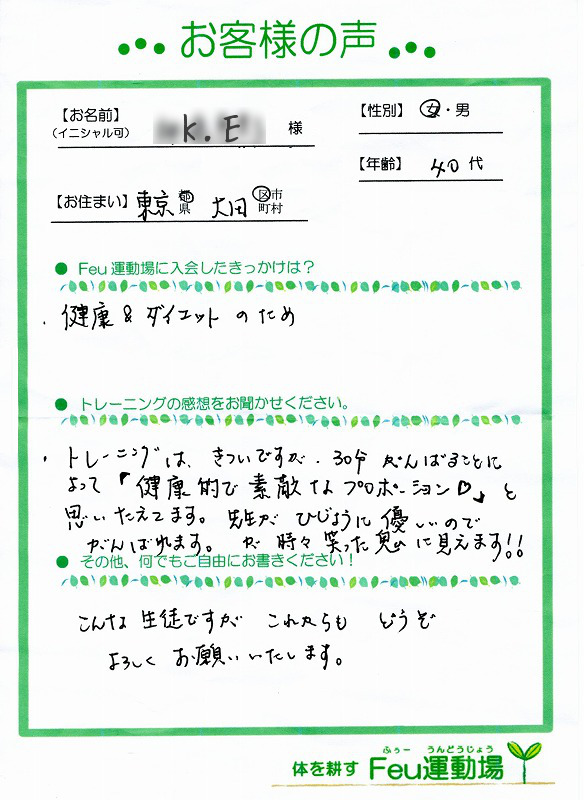 お客様の声
【お名前】
(イニシャル可)
K.E 様
【性別】 女・男
【年齢】 40代
【お住まい】 東京 都県 大田 区市町村
● Feu運動場に入会したきっかけは？
・健康 & ダイエット のため
● トレーニングの感想をお聞かせください。
・トレーニングは、きついですが、30分 がんばることに
よって「健康的で素敵なプロポーション♡」と
思いたえてます。先生が ひじょうに 優しいので
がんばれます。が 時々 笑った鬼に見えます!!
● その他、何でもご自由にお書きください！
こんな 生徒ですが これからも どうぞ
よろしく お願いいたします。
ふぅー うんどうじょう
体を耕す Feu運動場